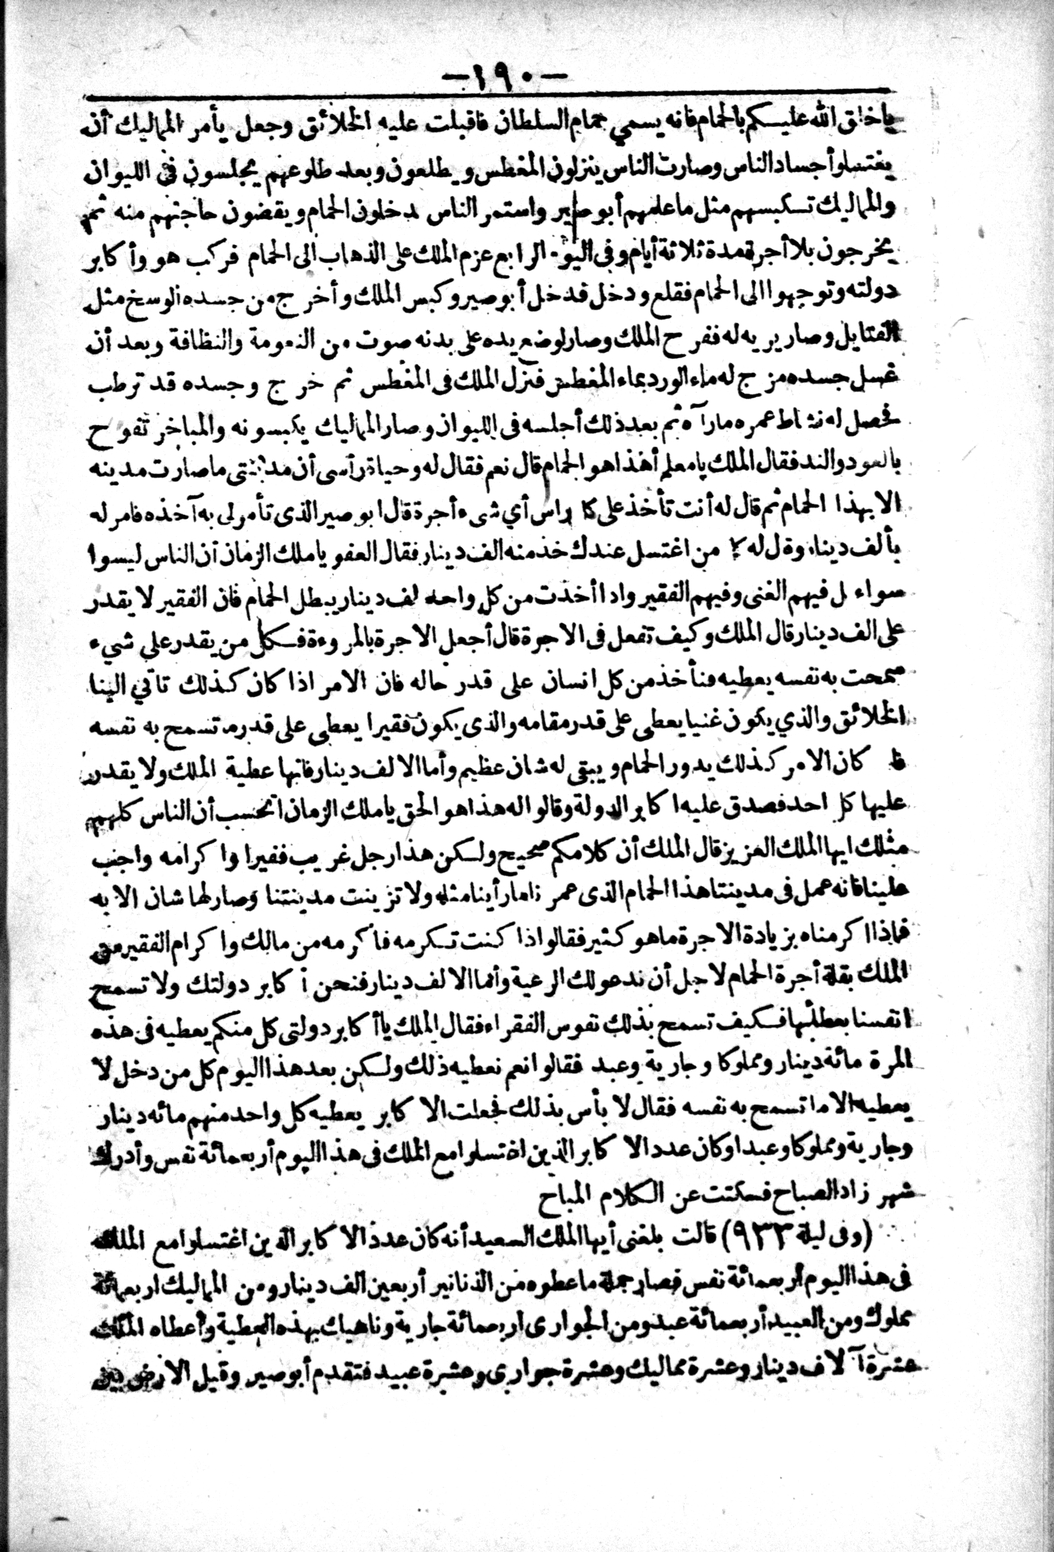 -١٩٠-
ياخلق الله عليكم بالحمام فانه يسمي حمام السلطان فاقبلت عليه الخلائق وجعل يأمر المماليك أن
يغتسلوا أجساد الناس وصارت الناس ينزلون المغطس ويطلعون وبعد طلوعهم يجلسون في الليوان
والمماليك تسكبسهم مثل ماعلمهم أبوصير واستمر الناس يدخلون الحمام ويقضون حاجتهم منه ثم
يخرجون بلا أجرة مدة ثلاثة أيام وفى اليوم الرابع عزم الملك على الذهاب الى الحمام فركب هو وأكابر
دولته وتوجهوا الى الحمام فقلع ودخل فدخل أبوصير وكبس الملك وأخرج من جسده الوسخ مثل
الفتايل وصار يريه له ففرح الملك وصار لوضع يده على بدنه صوت من النعومة والنظافة وبعد أن
غسل جسده مزج له ماء الورد بماء المغطس فنزل الملك فى المغطس ثم خرج وجسده قد ترطب
فحصل له نشاط عمره مارآه ثم بعد ذلك أجلسه فى الليوان وصار المماليك يكبسونه والمباخر تفوح
بالعود والند فقال الملك يامعلم أهذا هو الحمام قال نعم فقال له وحياة رأسى أن مدينتى ماصارت مدينه
الا بهذا الحمام ثم قال له أنت تأخذ على كل راس أي شىء أجرة قال ابوصير الذى تأمر لى به آخذه فامر له
بألف دينار وقال له كل من اغتسل عندك خذ منه الف دينار فقال العفو ياملك الزمان ان الناس ليسوا
سواء بل فيهم الغنى وفيهم الفقير واذا أخذت من كل واحد الف دينار يبطل الحمام فان الفقير لا يقدر
على الف دينار قال الملك وكيف تفعل فى الاجرة قال أجعل الاجرة بالمروءة فكل من يقدر على شيء
سمحت به نفسه يعطيه فنأخذ من كل انسان على قدر حاله فان الامر اذا كان كذلك تاتي الينا
الخلائق والذي يكون غنيا يعطى على قدر مقامه والذى يكون فقيرا يعطى على قدر ما تسمح به نفسه
فاذا كان الامر كذلك يدور الحمام ويبقى له شان عظيم وأما الالف دينار فانها عطية الملك ولا يقدر
عليها كل احد فصدق عليه اكابر الدولة وقالوا له هذا هو الحق ياملك الزمان اتحسب أن الناس كلهم
مثلك ايها الملك العزيز قال الملك أن كلامكم صحيح ولكن هذا رجل غريب فقير واكرامه واجب
علينا فانه عمل فى مدينتنا هذا الحمام الذى عمرنا مارأينا مثله ولا تزينت مدينتنا وصار لها شان الا به
فاذا اكرمناه بزيادة الاجرة ماهو كثير فقالوا اذا كنت تسكرمه فأكرمه من مالك واكرام الفقير من
الملك بقلة أجرة الحمام لاجل أن ندعو لك الرعية وأما الالف دينار فنحن أكابر دولتك ولا تسمح
انفسنا بعطائها فكيف تسمح بذلك نفوس الفقراء فقال الملك ياأكابر دولتى كل منكم يعطيه فى هذه
المرة مائة دينار ومملوكا وجارية وعبد فقالوا نعم نعطيه ذلك ولكن بعد هذا اليوم كل من دخل لا
يعطيه الا ماتسمح به نفسه فقال لا بأس بذلك فجعلت الاكابر يعطيه كل واحد منهم مائه دينار
وجارية ومملوكا وعبدا وكان عدد الاكابر الذين اغتسلوا مع الملك فى هذا اليوم أربعمائة نفس وأدرك
شهر زاد الصباح فسكتت عن الكلام المباح
(وفى ليلة ٩٣٣) قالت بلغنى أيها الملك السعيد أنه كان عدد الاكابر الذين اغتسلوا مع الملك
فى هذا اليوم اربعمائة نفس فصار جملة ماعطوه من الدنانير أربعين الف دينار ومن المماليك اربعمائة
مملوك ومن العبيد أربعمائة عبد ومن الجوارى اربعمائة جارية وناهيك بهذه العطية وأعطاه الملك
عشرة آلاف دينار وعشرة مماليك وعشرة جوارى وعشرة عبيد فتقدم أبوصير وقبل الارض بين